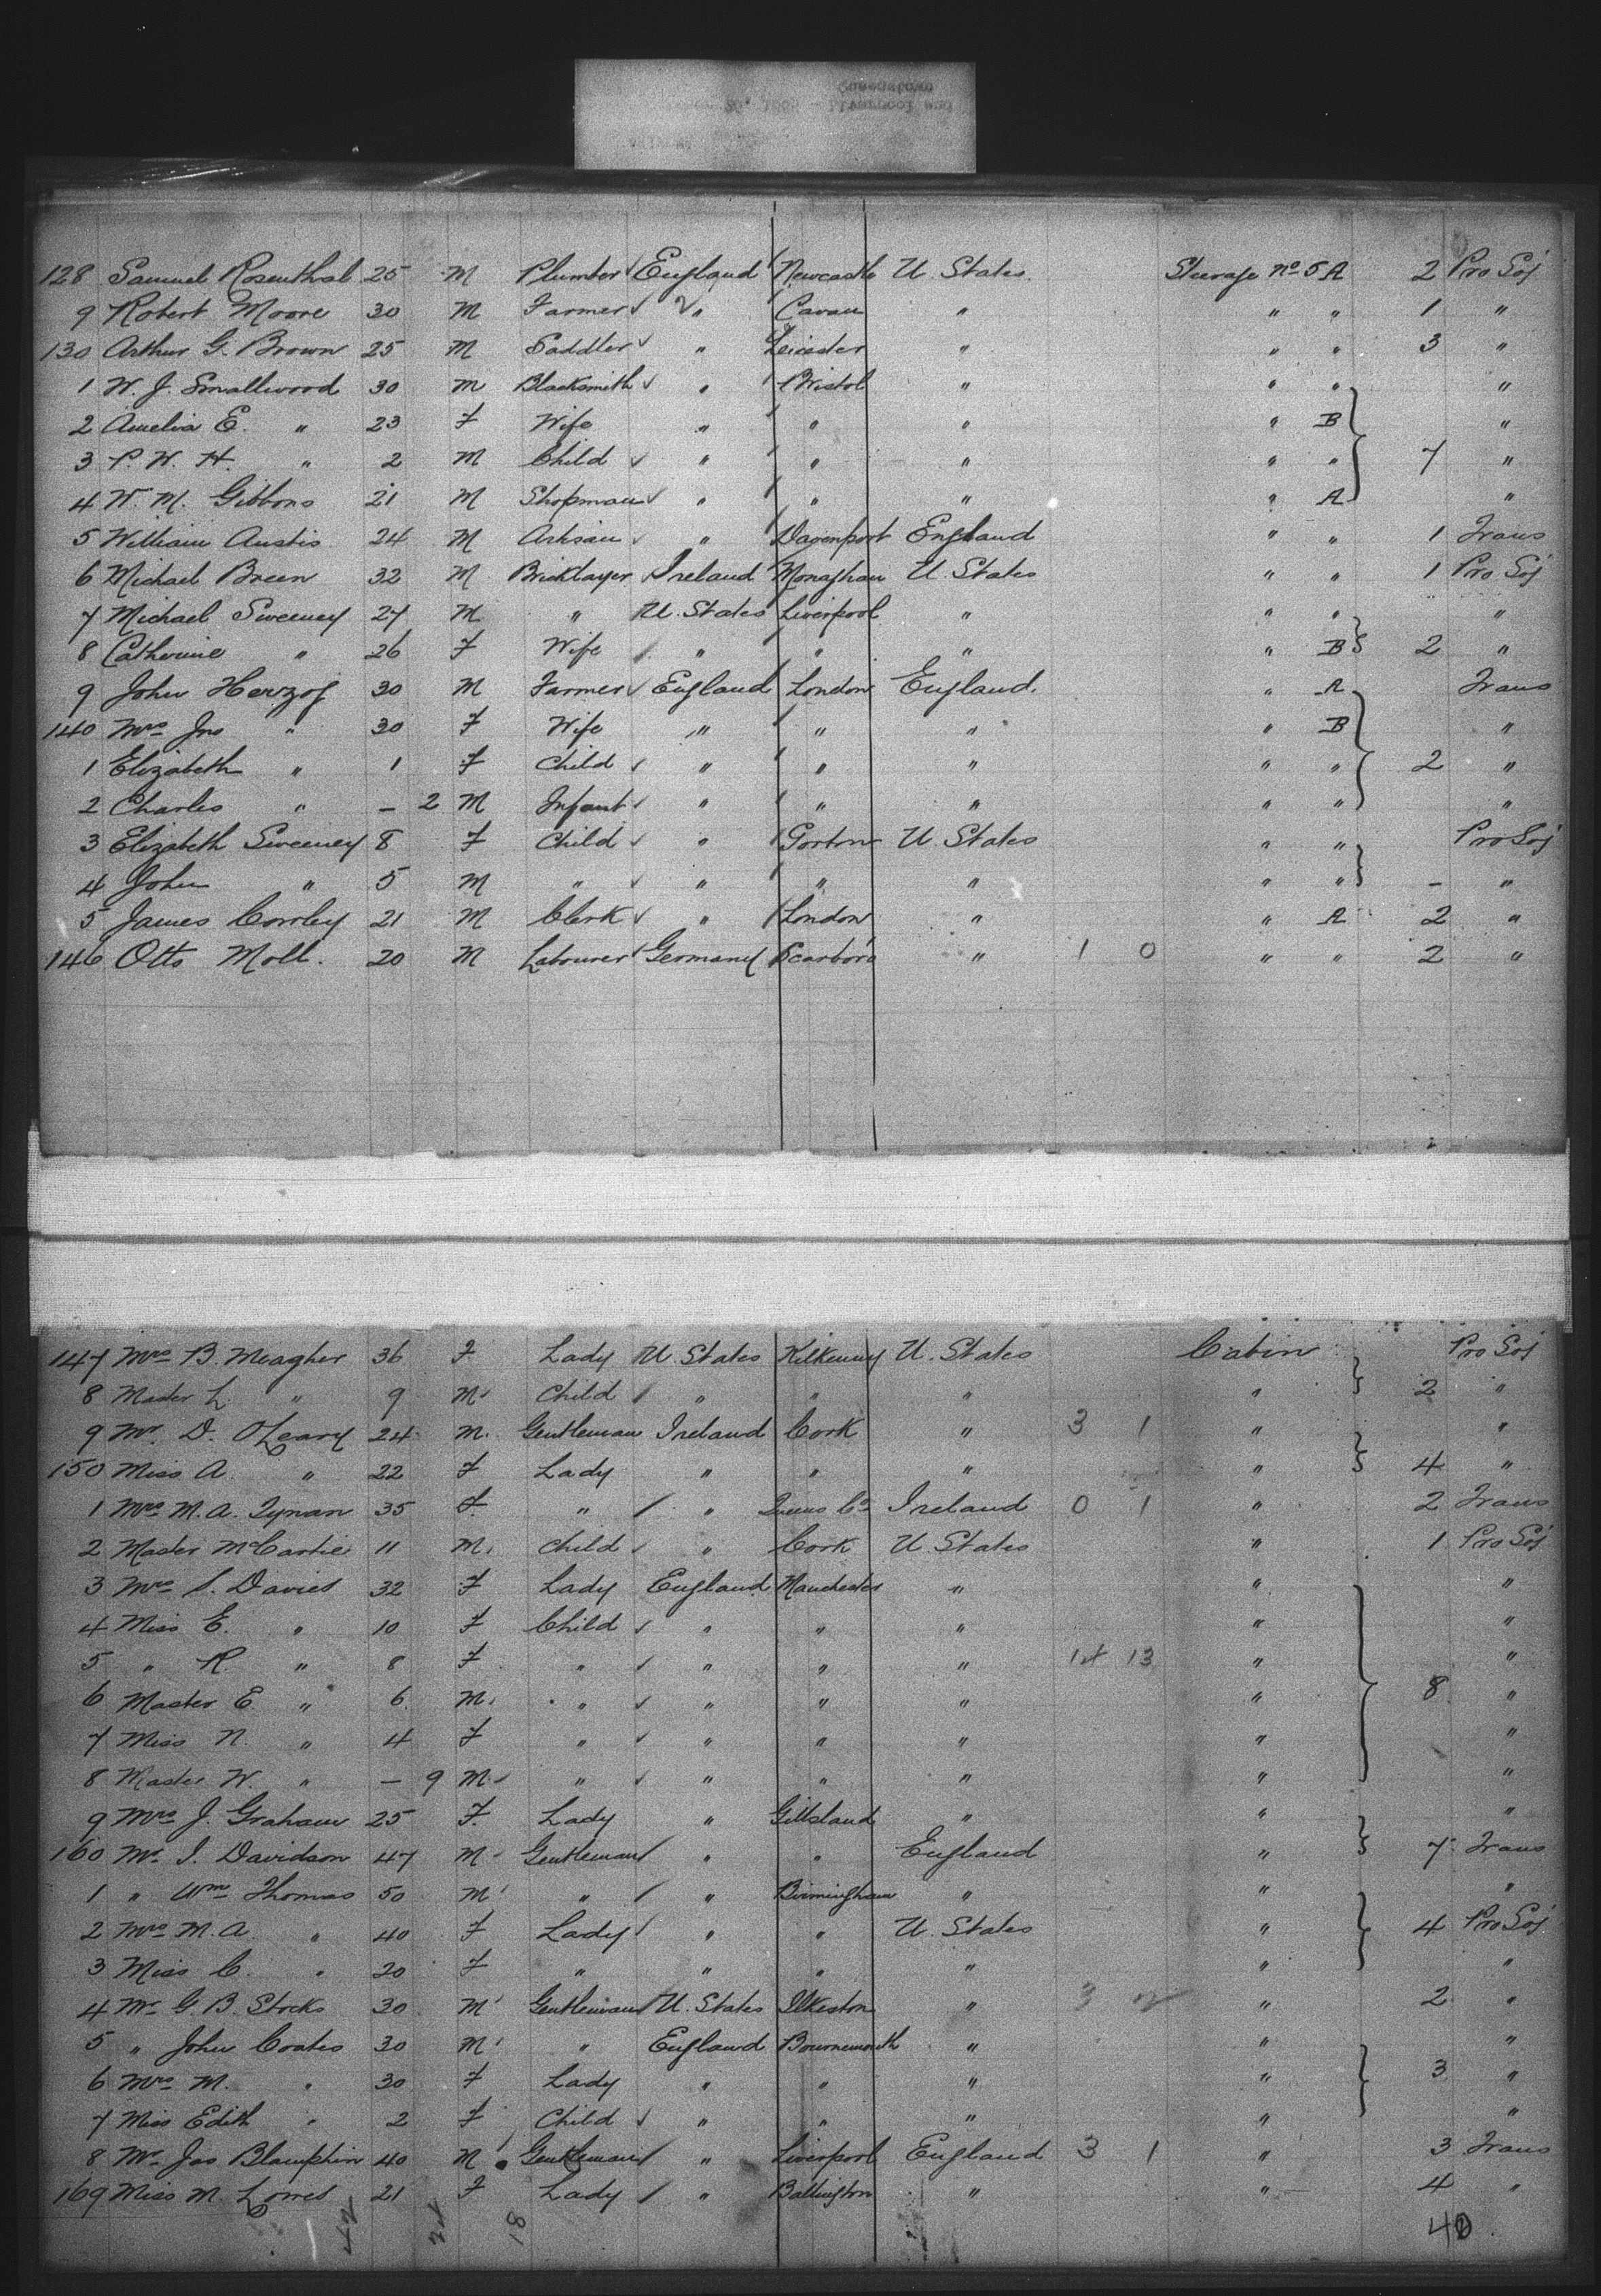 Queenstown
26, 188 - Liverpool and
128 Samuel Rosenthal 25 M Plumber England Newcastle U. States Steerage No 5 A 2 Pro Soj
9 Robert Moore 30 M Farmer " Cavan " " " 1 "
130 Arthur G. Brown 25 M Saddler " Leicester " " " 3 "
1 W. J. Smallwood 30 M Blacksmith " Bristol " " " "
2 Amelia E. " 23 F Wife " " " " B "
3 P. W. H. " 2 M Child " " " " " 7 "
4 W. M. Gibbons 21 M Shopman " " " " A "
5 William Austis 24 M Artisan " Davenport England " " 1 Trans
6 Michael Breen 32 M Bricklayer Ireland Monaghan U. States " " 1 Pro Soj
7 Michael Sweeney 27 M " U. States Liverpool " " " "
8 Catherine " 26 F Wife " " " " B 2 "
9 John Herzog 30 M Farmer England London England " A Trans
140 Mrs Jno " 30 F Wife " " " " B "
1 Elizabeth " 1 F Child " " " " " 2 "
2 Charles " - 2 M Infant " " " " " "
3 Elizabeth Sweeney 8 F Child " Gorton U. States " " Pro Soj
4 John " 5 M " " " " " " - "
5 James Corrley 21 M Clerk " London " " A 2 "
146 Otto Moll. 20 M Labourer Germany Scarboro " 1 0 " " 2 "
147 Mrs B. Meagher 36 F Lady U. States Kilkenny U. States Cabin Pro Soj
8 Master L. " 9 M Child " " " " 2 "
9 Mr. D. O'Leary 24 M. Gentleman Ireland Cork " 3 1 " "
150 Miss A. " 22 F Lady " " " " 4 "
1 Mrs M. A. Tynan 35 F. " " Queens Co Ireland 0 1 " 2 Trans
2 Master McCartie 11 M. Child " Cork U. States " 1 Pro Soj
3 Mrs S. Davies 32 F Lady England Manchester " " "
4 Miss E. " 10 F Child " " " " "
5 " R. " 8 F " " " " 14 13 " "
6 Master E " 6 M. " " " " " 8 "
7 Miss N. " 4 F " " " " " "
8 Master W. " - 9 M. " " " " " "
9 Mrs J. Graham 25 F. Lady " Gillsland " " "
160 Mr. I. Davidson 47 M Gentleman " " England " 7 Trans
1 " Wm Thomas 50 M " " Birmingham " " "
2 Mrs M. A. " 40 F Lady " " U. States " 4 Pro Soj
3 Miss C. " 20 F " " " " " "
4 Mr G. B. Stocks 30 M Gentleman U. States Ilkeston " 3 2 " 2 "
5 " John Coates 30 M " England Bournemouth " " "
6 Mrs M. " 30 F Lady " " " " 3 "
7 Miss Edith " 2 F Child " " " " "
8 Mr Jas Blamphin 40 M Gentleman " Liverpool England 3 1 " 3 Trans
169 Miss M. Lorret 21 F Lady " Ballington " " 4 "
18
40